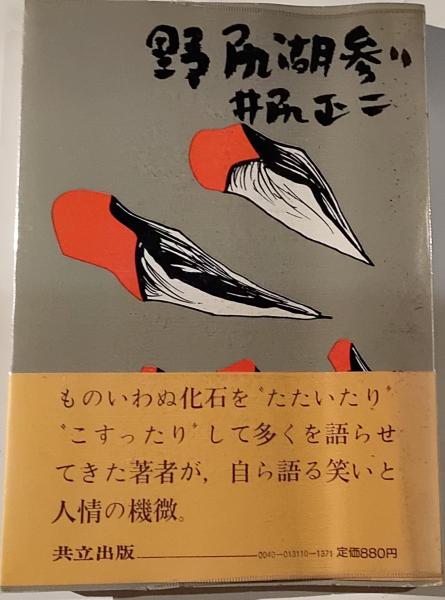 野尻湖参り
井尻正二
ものいわぬ化石を〝たたいたり〟
〝こすったり〟して多くを語らせ
てきた著者が，自ら語る笑いと
人情の機微。
共立出版 0040-013110-1371 定価880円